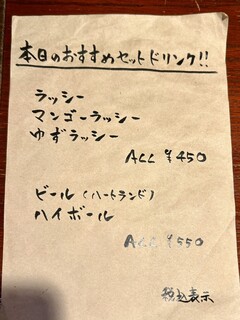 本日のおすすめセットドリンク!!
ラッシー
マンゴーラッシー
ゆずラッシー
ALL ¥450
ビール (ハートランド)
ハイボール
ALL ¥550
税込表示